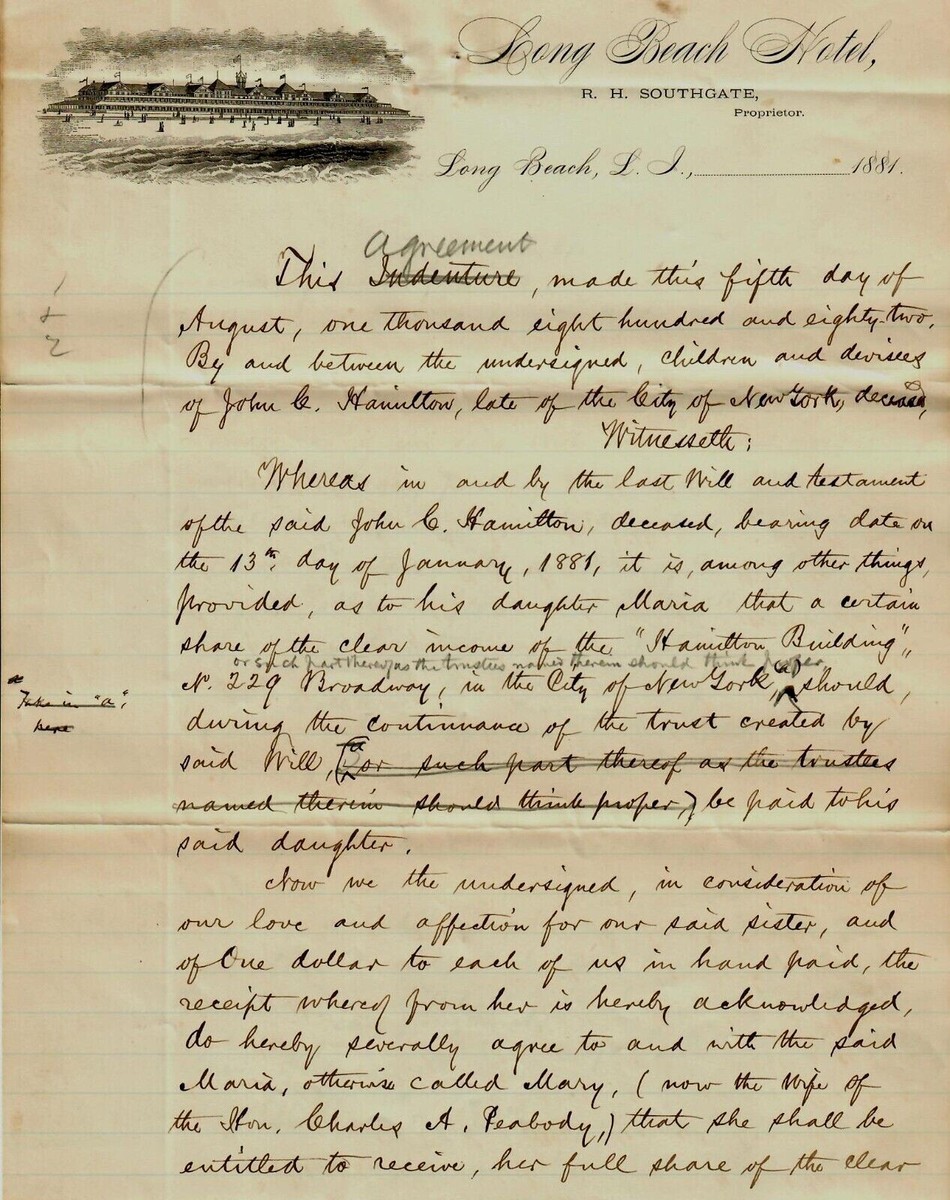 Long Beach Hotel,
R. H. SOUTHGATE,
Proprietor.
Long Beach, L. I., 1881.
Agreement
This Indenture, made this fifth day of
August, one thousand eight hundred and eighty-two,
By and between the undersigned, children and devisees
of John C. Hamilton, late of the City of New York, deceased,
Witnesseth:
Whereas in and by the last Will and testament
of the said John C. Hamilton, deceased, bearing date on
the 13th day of January, 1881, it is, among other things,
provided, as to his daughter Maria that a certain
share of the clear income of the "Hamilton Building",
or such part thereof as the trustees named therein should think proper
No. 229 Broadway, in the City of New York, should,
a
Take in "a",
here
during the continuance of the trust created by
said Will, (or such part thereof as the trustees
named therein should think proper,) be paid to his
said daughter.
Now we the undersigned, in consideration of
our love and affection for our said sister, and
of One dollar to each of us in hand paid, the
receipt whereof from her is hereby acknowledged,
do hereby severally agree to and with the said
Maria, otherwise called Mary, (now the wife of
the Hon. Charles A. Peabody,) that she shall be
entitled to receive, her full share of the clear